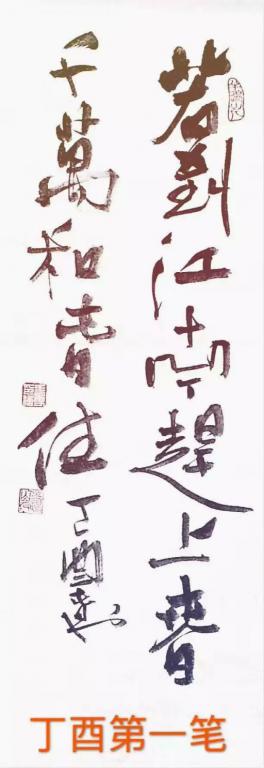 若到江南趕上春
千萬和春住 丁酉
丁酉第一笔